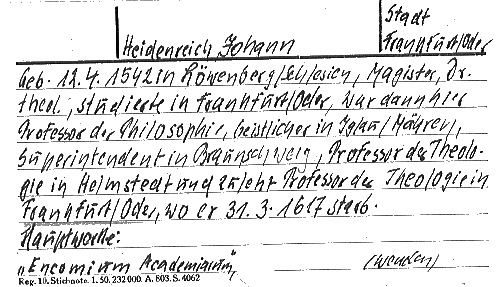 Stadt
Heidenreich, Johann Frankfurt/Oder
Geb. 12.4. 1542 in Löwenberg/Schlesien, Magister, Dr.
theol., studierte in Frankfurt/Oder, war dann hier
Professor der Philosophie, Geistlicher in Iglau/Mähren,
Superintendent in Braunschweig, Professor der Theolo-
gie in Helmstedt und zuletzt Professor der Theologie in
Frankfurt/Oder, wo er 31.3.1617 starb.
Hauptwerke:
„Encomium Academiarum“ (wenden)
Reg. 10. Stichnote. 1. 50. 232 000. A. 803. S. 4062